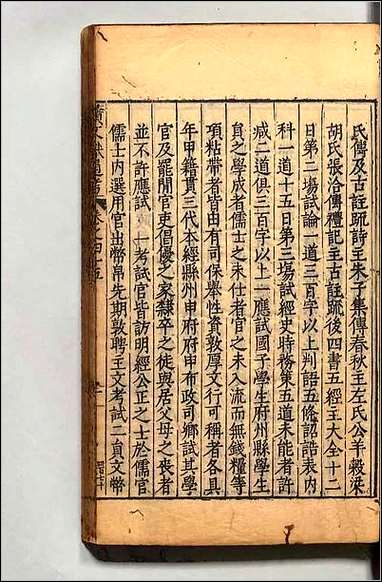 氏傳及古註疏詩主朱子集傳春秋主左氏公羊穀梁
胡氏張洽傳禮記主古註疏後四書五經主大全十二
日第二場試論一道三百字以上判語五條詔誥表內
科一道十五日第三場試經史時務策五道未能者許
減二道俱三百字以上一應試國子學生府州縣學生
員之學成者儒士之未仕者官之未入流而無錢糧等
項粘帶者皆由有司保舉性資敦厚文行可稱者各具
年甲籍貫三代本經縣州申府府申布政司鄉試其學
官及罷閒官吏倡優之家隸卒之徒與居父母之喪者
並不許應試一考試官皆訪明經公正之士於儒官
儒士內選用官出幣帛先期敦聘主文考試二員文幣